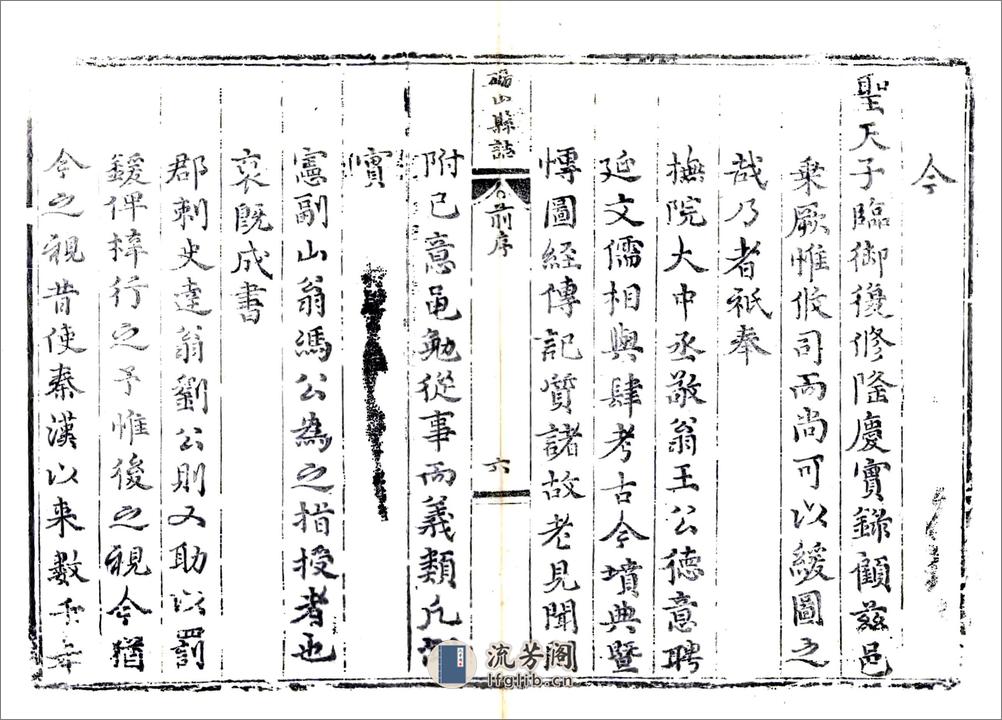 今
聖天子臨御發修隆慶實錄顧茲邑
乗厥惟攸司而尚可以緩圖之
哉乃者祇奉
撫院大中丞敬翁王公德意聘
延文儒相與肆考古今墳典暨
慱圖經傳記質諸故老見聞間
碭山縣誌
前序
六
附已意黽勉從事而義類凡
實
憲副山翁馮公為之指授者也
裒既成書
郡刺史達翁劉公則又助以罰
鍰俾梓行之予惟後之視今猶
今之視昔使秦漢以来數千年
流芳閣
lfglib.cn